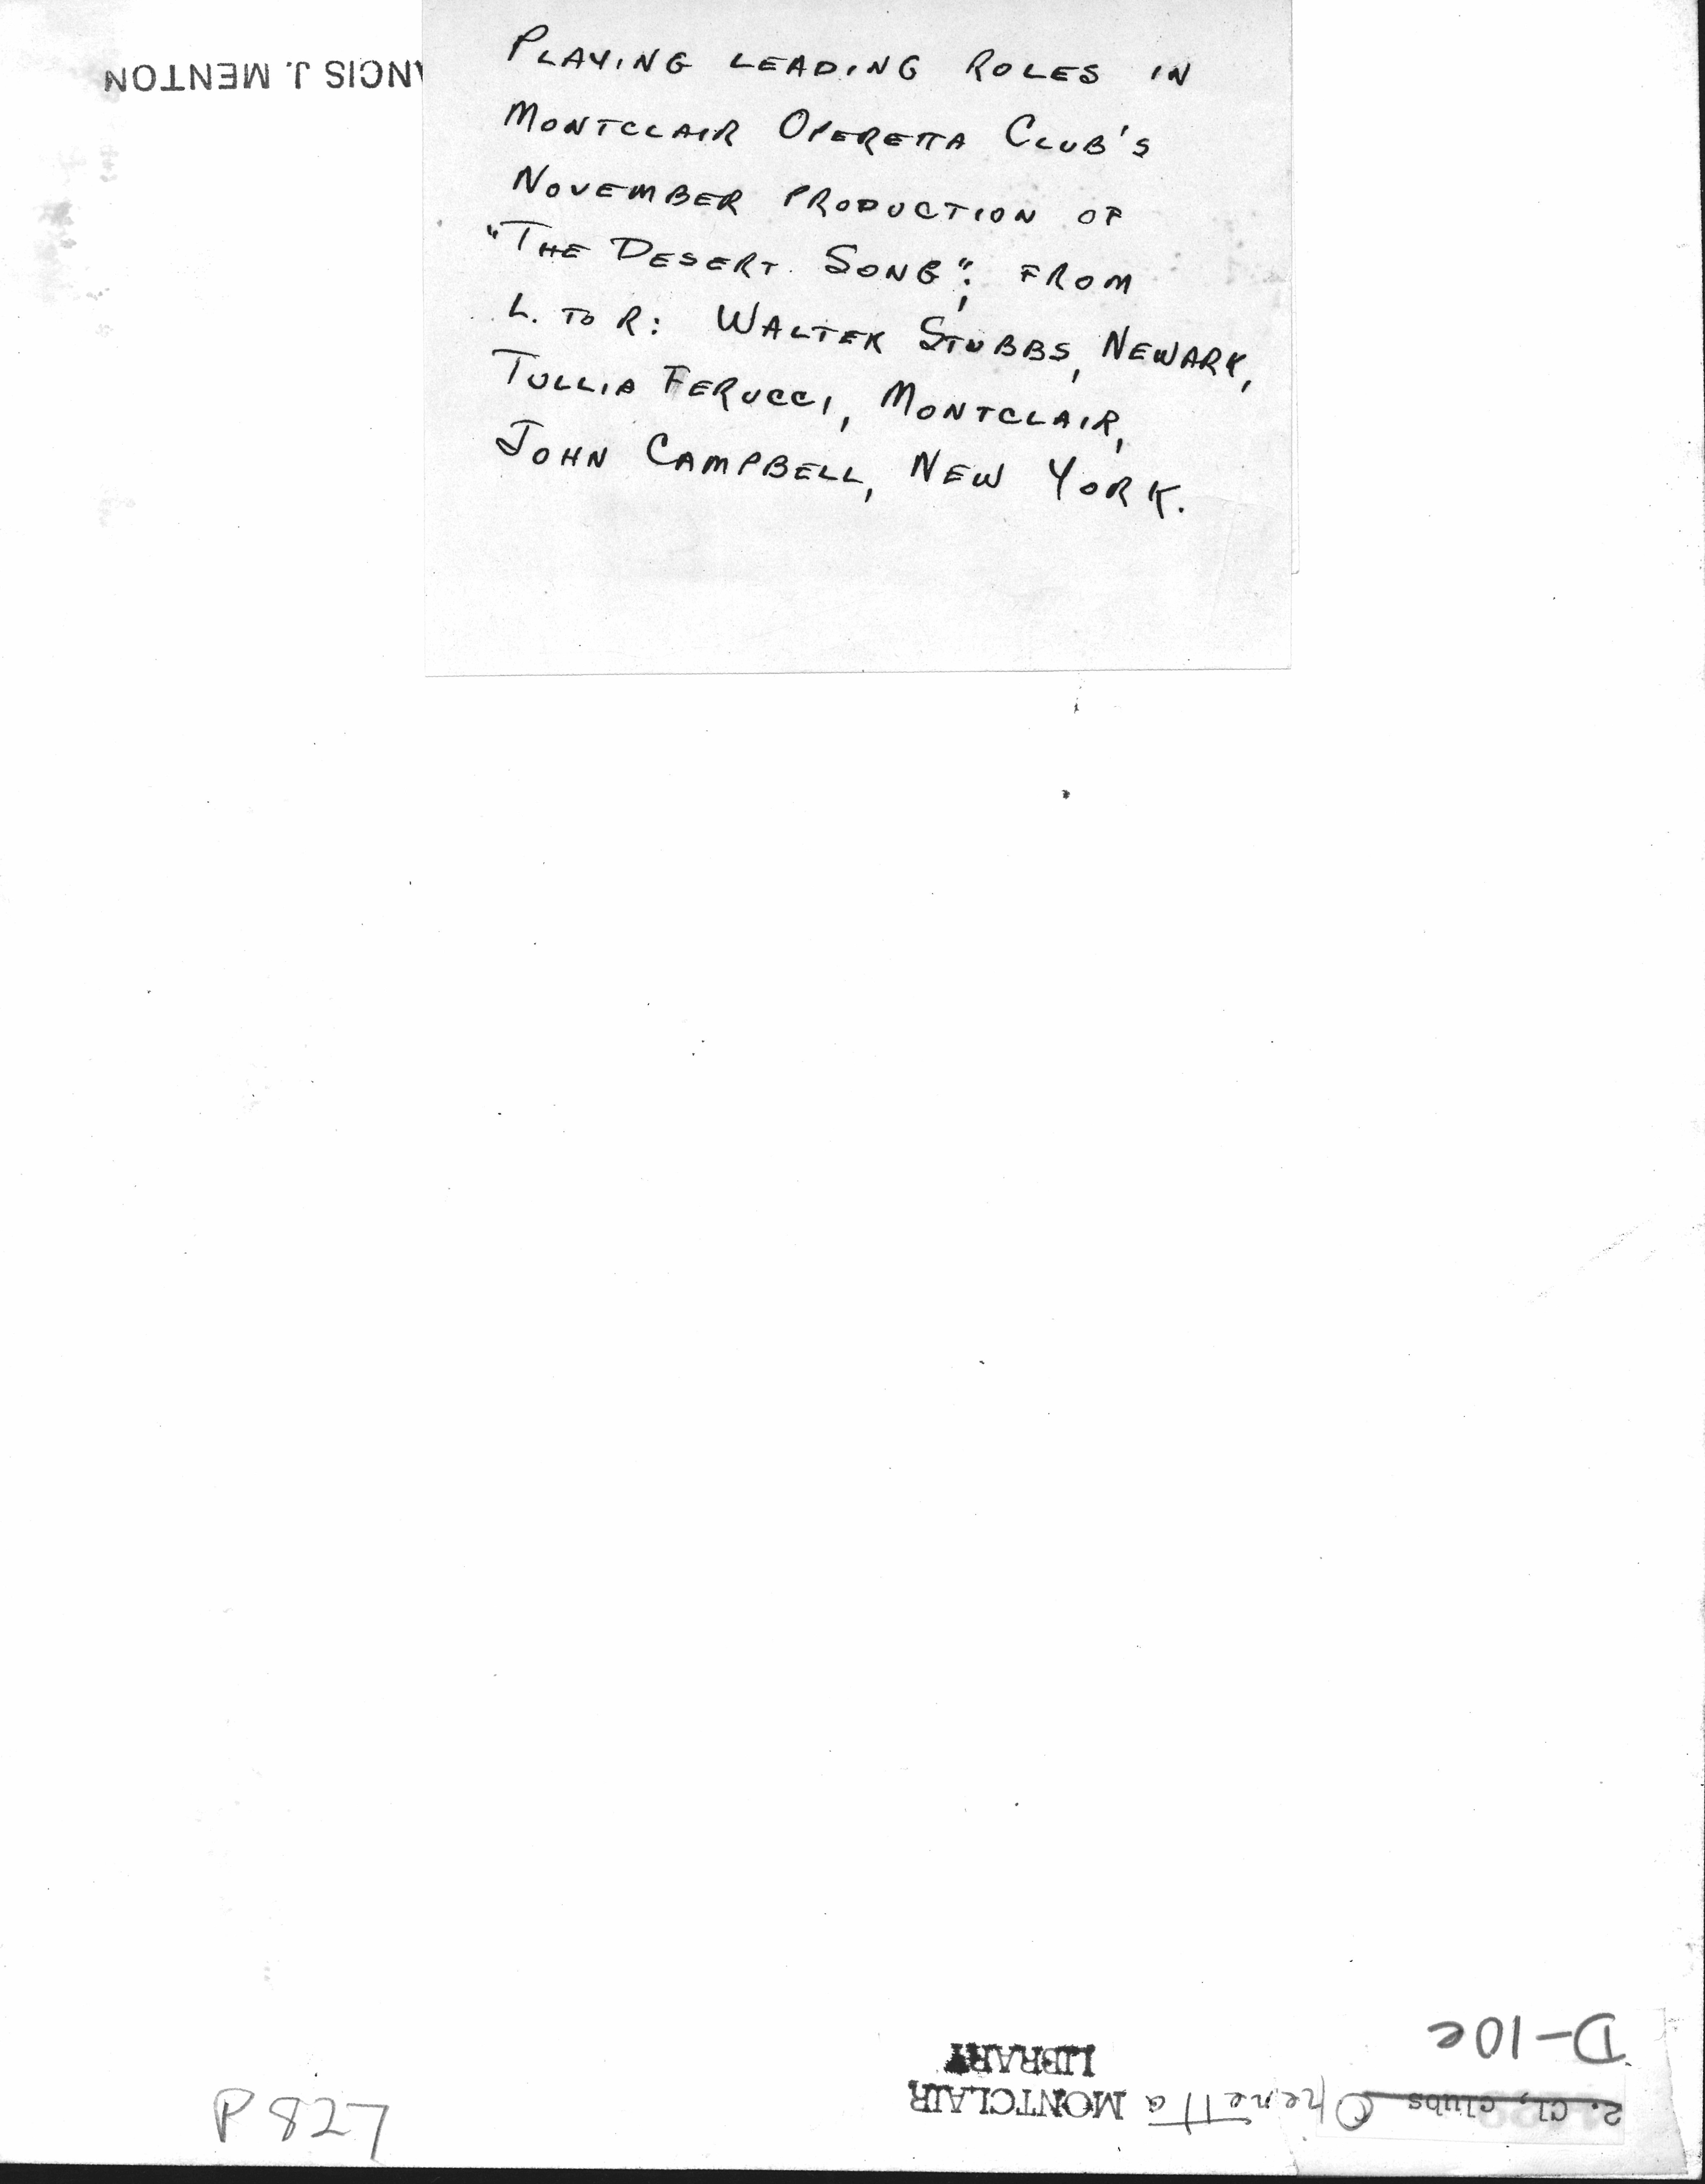 ANCIS J. MENTON
PLAYING LEADING ROLES IN
MONTCLAIR OPERETTA CLUB'S
NOVEMBER PRODUCTION OF
"THE DESERT SONG"; FROM
L. TO R: WALTER STUBBS, NEWARK,
TULLIA FERUCCI, MONTCLAIR,
JOHN CAMPBELL, NEW YORK.
D-10e
2. Cl, clubs Operetta
MONTCLAIR
LIBRARY
P 827